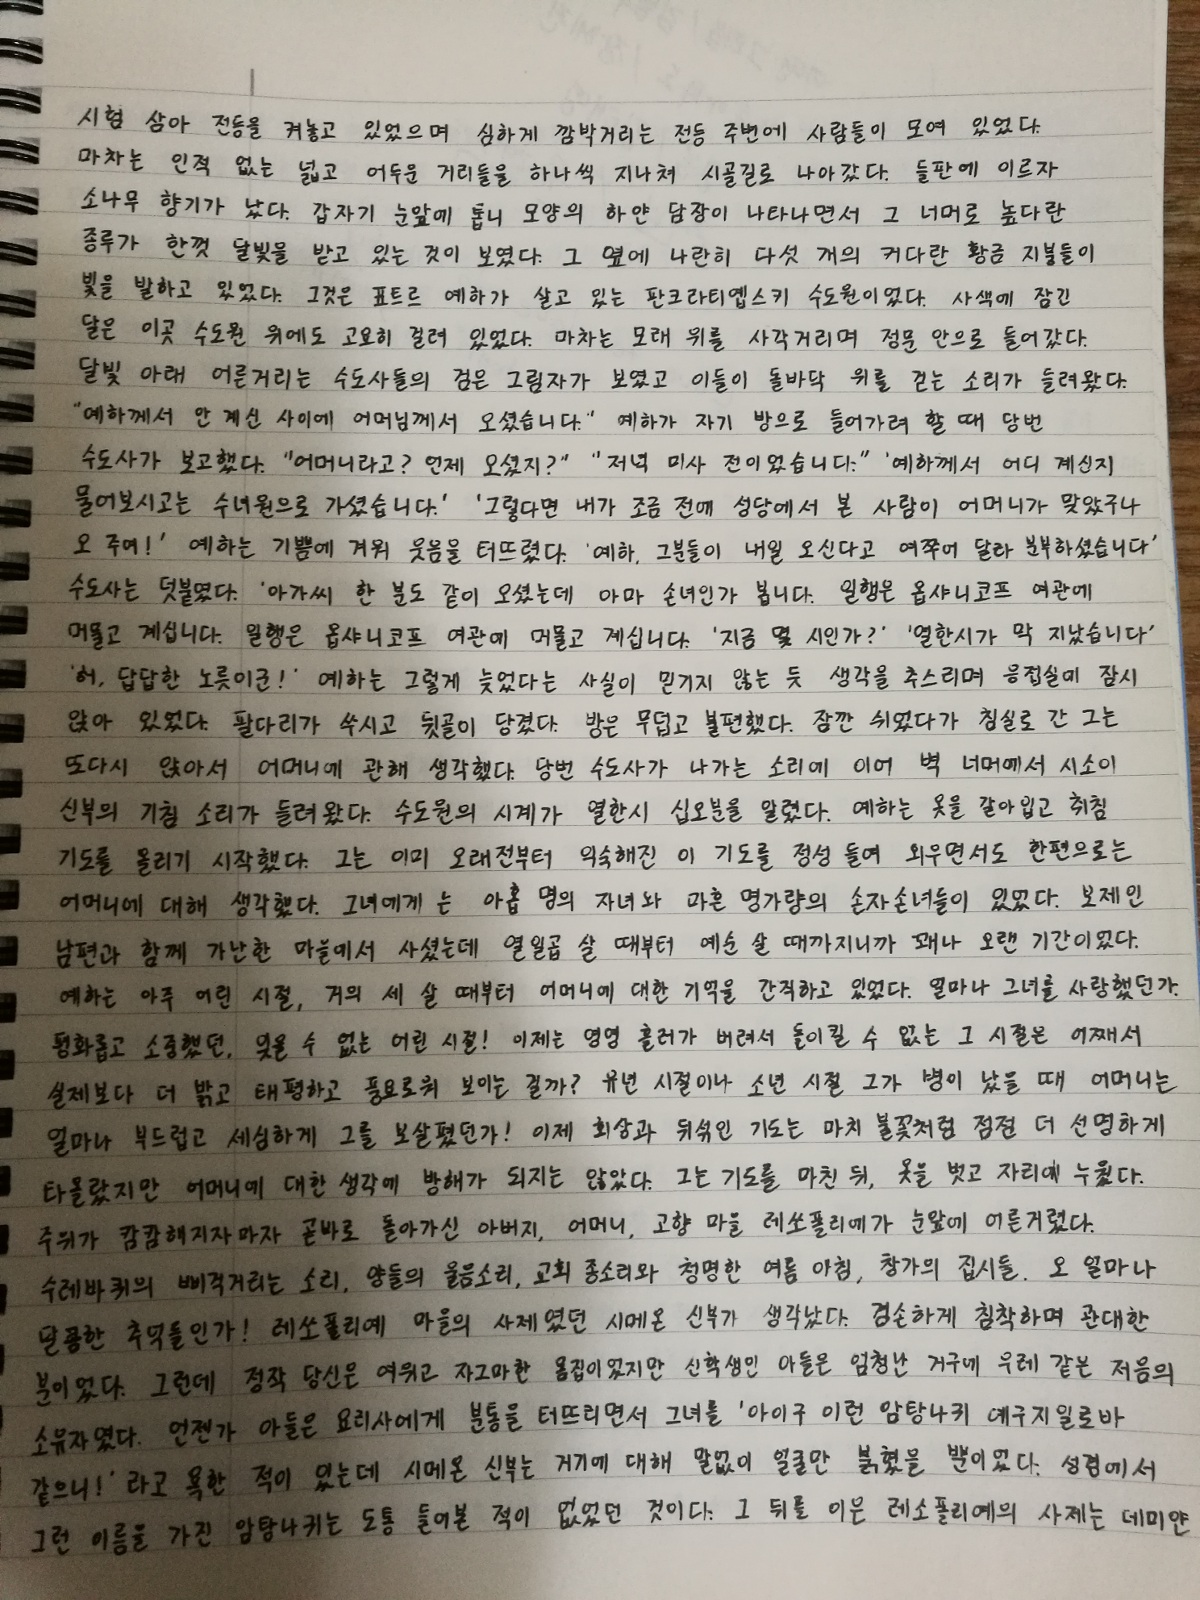 시험 삼아 전등을 켜놓고 있었으며 심하게 깜박거리는 전등 주변에 사람들이 모여 있었다.
마차는 인적 없는 넓고 어두운 거리들을 하나씩 지나쳐 시골길로 나아갔다. 들판에 이르자
소나무 향기가 났다. 갑자기 눈앞에 톱니 모양의 하얀 담장이 나타나면서 그 너머로 높다란
종루가 한껏 달빛을 받고 있는 것이 보였다. 그 옆에 나란히 다섯 개의 커다란 황금 지붕들이
빛을 발하고 있었다. 그것은 표트르 예하가 살고 있는 판크라티옙스키 수도원이었다. 사색에 잠긴
달은 이곳 수도원 위에도 고요히 걸려 있었다. 마차는 모래 위를 사각거리며 정문 안으로 들어갔다.
달빛 아래 어른거리는 수도사들의 검은 그림자가 보였고 이들이 돌바닥 위를 걷는 소리가 들려왔다.
"예하께서 안 계신 사이에 어머님께서 오셨습니다." 예하가 자기 방으로 들어가려 할 때 당번
수도사가 보고했다. "어머니라고? 언제 오셨지?" "저녁 미사 전이었습니다." '예하께서 어디 계신지
물어보시고는 수녀원으로 가셨습니다.' '그렇다면 내가 조금 전에 성당에서 본 사람이 어머니가 맞았구나
오 주여!' 예하는 기쁨에 겨워 웃음을 터뜨렸다. '예하, 그분들이 내일 오신다고 여쭈어 달라 분부하셨습니다'
수도사는 덧붙였다. '아가씨 한 분도 같이 오셨는데 아마 손녀인가 봅니다. 일행은 옵샤니코프 여관에
머물고 계십니다. 일행은 옵샤니코프 여관에 머물고 계십니다. '지금 몇 시인가?' '열한시가 막 지났습니다'
'허, 답답한 노릇이군!' 예하는 그렇게 늦었다는 사실이 믿기지 않는 듯 생각을 추스리며 응접실에 잠시
앉아 있었다. 팔다리가 쑤시고 뒷골이 당겼다. 방은 무덥고 불편했다. 잠깐 쉬었다가 침실로 간 그는
또다시 앉아서 어머니에 관해 생각했다. 당번 수도사가 나가는 소리에 이어 벽 너머에서 시소이
신부의 기침 소리가 들려왔다. 수도원의 시계가 열한시 십오분을 알렸다. 예하는 옷을 갈아입고 취침
기도를 올리기 시작했다. 그는 이미 오래전부터 익숙해진 이 기도를 정성 들여 외우면서도 한편으로는
어머니에 대해 생각했다. 그녀에게 는 아홉 명의 자녀와 마흔 명가량의 손자손녀들이 있었다. 보제인
남편과 함께 가난한 마을에서 사셨는데 열일곱 살 때부터 예순 살 때까지니까 꽤나 오랜 기간이었다.
예하는 아주 어린 시절, 거의 세 살 때부터 어머니에 대한 기억을 간직하고 있었다. 얼마나 그녀를 사랑했던가.
평화롭고 소중했던, 잊을 수 없는 어린 시절! 이제는 영영 흘러가 버려서 돌이킬 수 없는 그 시절은 어째서
실제보다 더 밝고 태평하고 풍요로워 보이는 걸까? 유년 시절이나 소년 시절 그가 병이 났을 때 어머니는
얼마나 부드럽고 세심하게 그를 보살폈던가! 이제 회상과 뒤섞인 기도는 마치 불꽃처럼 점점 더 선명하게
타올랐지만 어머니에 대한 생각에 방해가 되지는 않았다. 그는 기도를 마친 뒤, 옷을 벗고 자리에 누웠다.
주위가 캄캄해지자마자 곧바로 돌아가신 아버지, 어머니, 고향 마을 레쏘폴리예가 눈앞에 어른거렸다.
수레바퀴의 삐걱거리는 소리, 양들의 울음소리, 교회 종소리와 청명한 여름 아침, 창가의 집시들. 오 얼마나
달콤한 추억들인가! 레쏘폴리예 마을의 사제였던 시메온 신부가 생각났다. 겸손하게 침착하며 관대한
분이었다. 그런데 정작 당신은 여위고 자그마한 몸집이었지만 신학생인 아들은 엄청난 거구에 우레 같은 저음의
소유자였다. 언젠가 아들은 요리사에게 분통을 터뜨리면서 그녀를 '아이구 이런 암탕나귀 예구지일로바
같으니!' 라고 욕한 적이 있는데 시메온 신부는 거기에 대해 말없이 얼굴만 붉혔을 뿐이었다. 성경에서
그런 이름을 가진 암탕나귀는 도통 들어본 적이 없었던 것이다. 그 뒤를 이은 레소폴리예의 사제는 데미얀